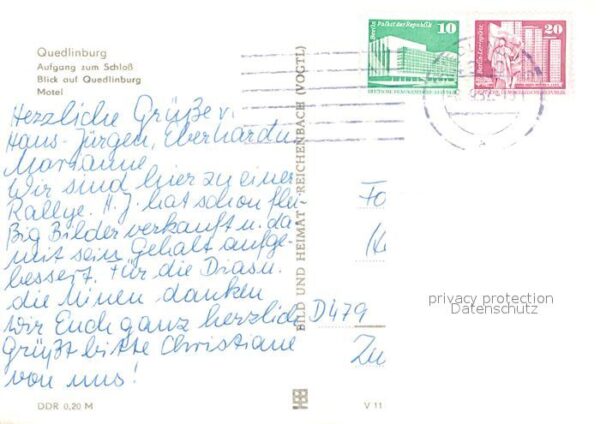 Quedlinburg
Aufgang zum Schloß
Blick auf Quedlinburg
Motel
Berlin Palast der Republik
10
DEUTSCHE DEMOKRATISCHE REPUBLIK
Berlin Leninplatz
20
DEUTSCHE DEMOKRATISCHE REPUBLIK
Herzliche Grüße v.
Hans-Jürgen, Eberhard u.
Marianne.
Wir sind hier zu einer
Rallye. H. J. hat schon flei
ßig Bilder verkauft u. da
mit sein Gehalt aufge-
bessert. Für die Dias u.
die Minen danken
wir Euch ganz herzlich
Grüßt bitte Christiane
von uns!
BILD UND HEIMAT · REICHENBACH (VOGTL)
D479
Zu
privacy protection
Datenschutz
DDR 0,20 M
V 11